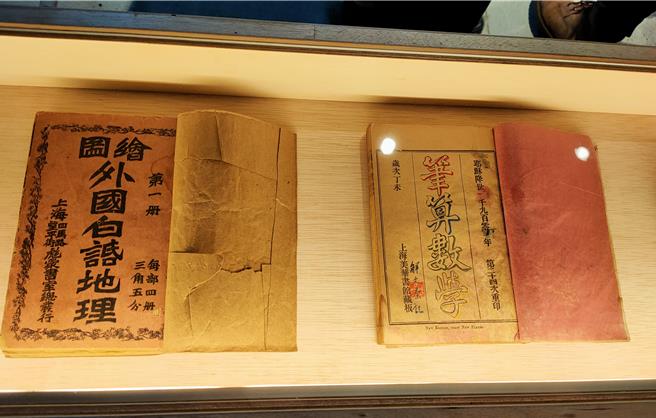 繪圖
第一冊
每部四冊
三角五分
外國白話地理
上海
彪蒙書室總發行
耶穌降世一千九百
年
第二十四次重印
筆算數學
歲次丁未
上海美華書館藏板
New Edition, from New Plates